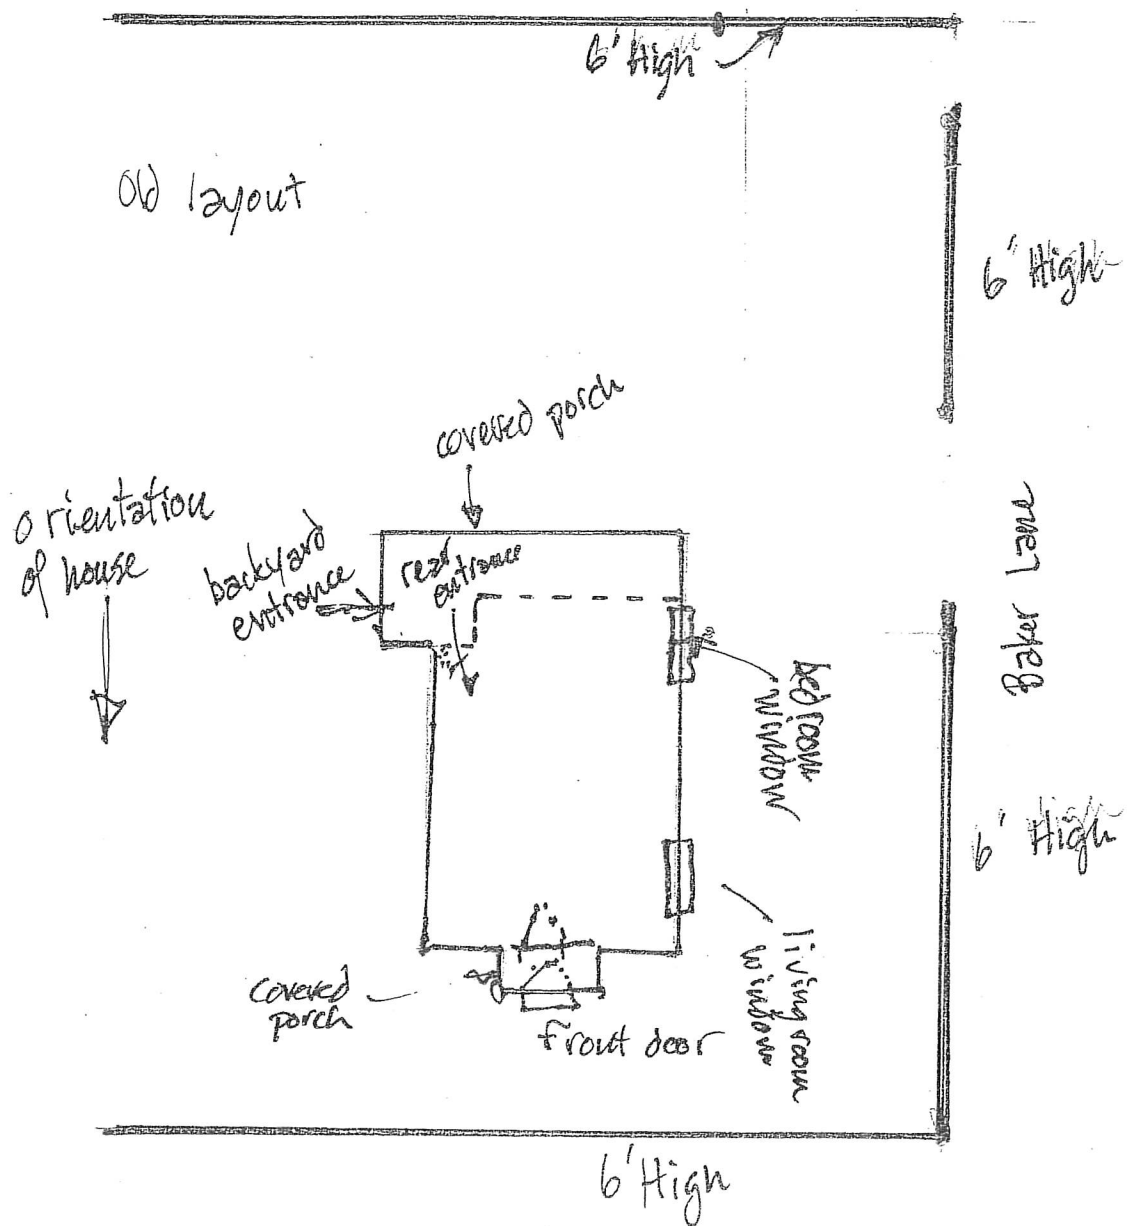 6' High
Old layout
6' High
covered porch
orientation
of house
backyard
entrance
rear
entrance
Baker Lane
bedroom
window
6' High
living room
window
covered
porch
Front door
6' High